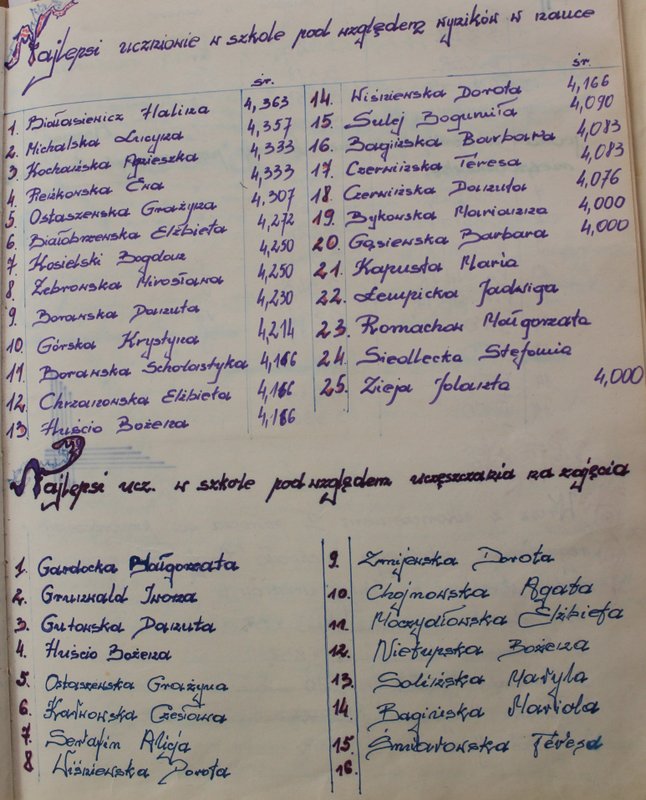 Najlepsi uczniowie w szkole pod względem wyników w nauce
śr.
1. Białasiewicz Halina 4,363
2. Michalska Lucyna 4,357
3. Kochańska Agnieszka 4,333
4. Pieńkowska Ewa 4,333
5. Ostaszewska Grażyna 4,307
6. Białobrzewska Elżbieta 4,272
7. Kosielski Bogdan 4,250
8. Żebrowska Mirosława 4,250
9. Borawska Danuta 4,230
10. Górska Krystyna 4,214
11. Borawska Scholastyka 4,166
12. Chrzanowska Elżbieta 4,166
13. Huścio Bożena 4,166
śr.
14. Wiśniewska Dorota 4,166
15. Sulej Bogumiła 4,090
16. Bagińska Barbara 4,083
17. Czerwińska Teresa 4,083
18. Czerwińska Danuta 4,076
19. Bykowska Marianna 4,000
20. Gąsiewska Barbara 4,000
21. Kapusta Maria
22. Łempicka Jadwiga
23. Romachow Małgorzata
24. Siedlecka Stefania
25. Zieja Jolanta 4,000
Najlepsi ucz. w szkole pod względem uczęszczania na zajęcia
1. Gardocka Małgorzata
2. Grunwald Iwona
3. Gutowska Danuta
4. Huścio Bożena
5. Ostaszewska Grażyna
6. Karwowska Czesława
7. Serafin Alicja
8 Wiśniewska Dorota
9. Żmijewska Dorota
10. Chojnowska Agata
11. Moczydłowska Elżbieta
12. Nietupska Bożena
13. Solińska Maryla
14. Bagińska Mariola
15. Śmiarowska Teresa
16.